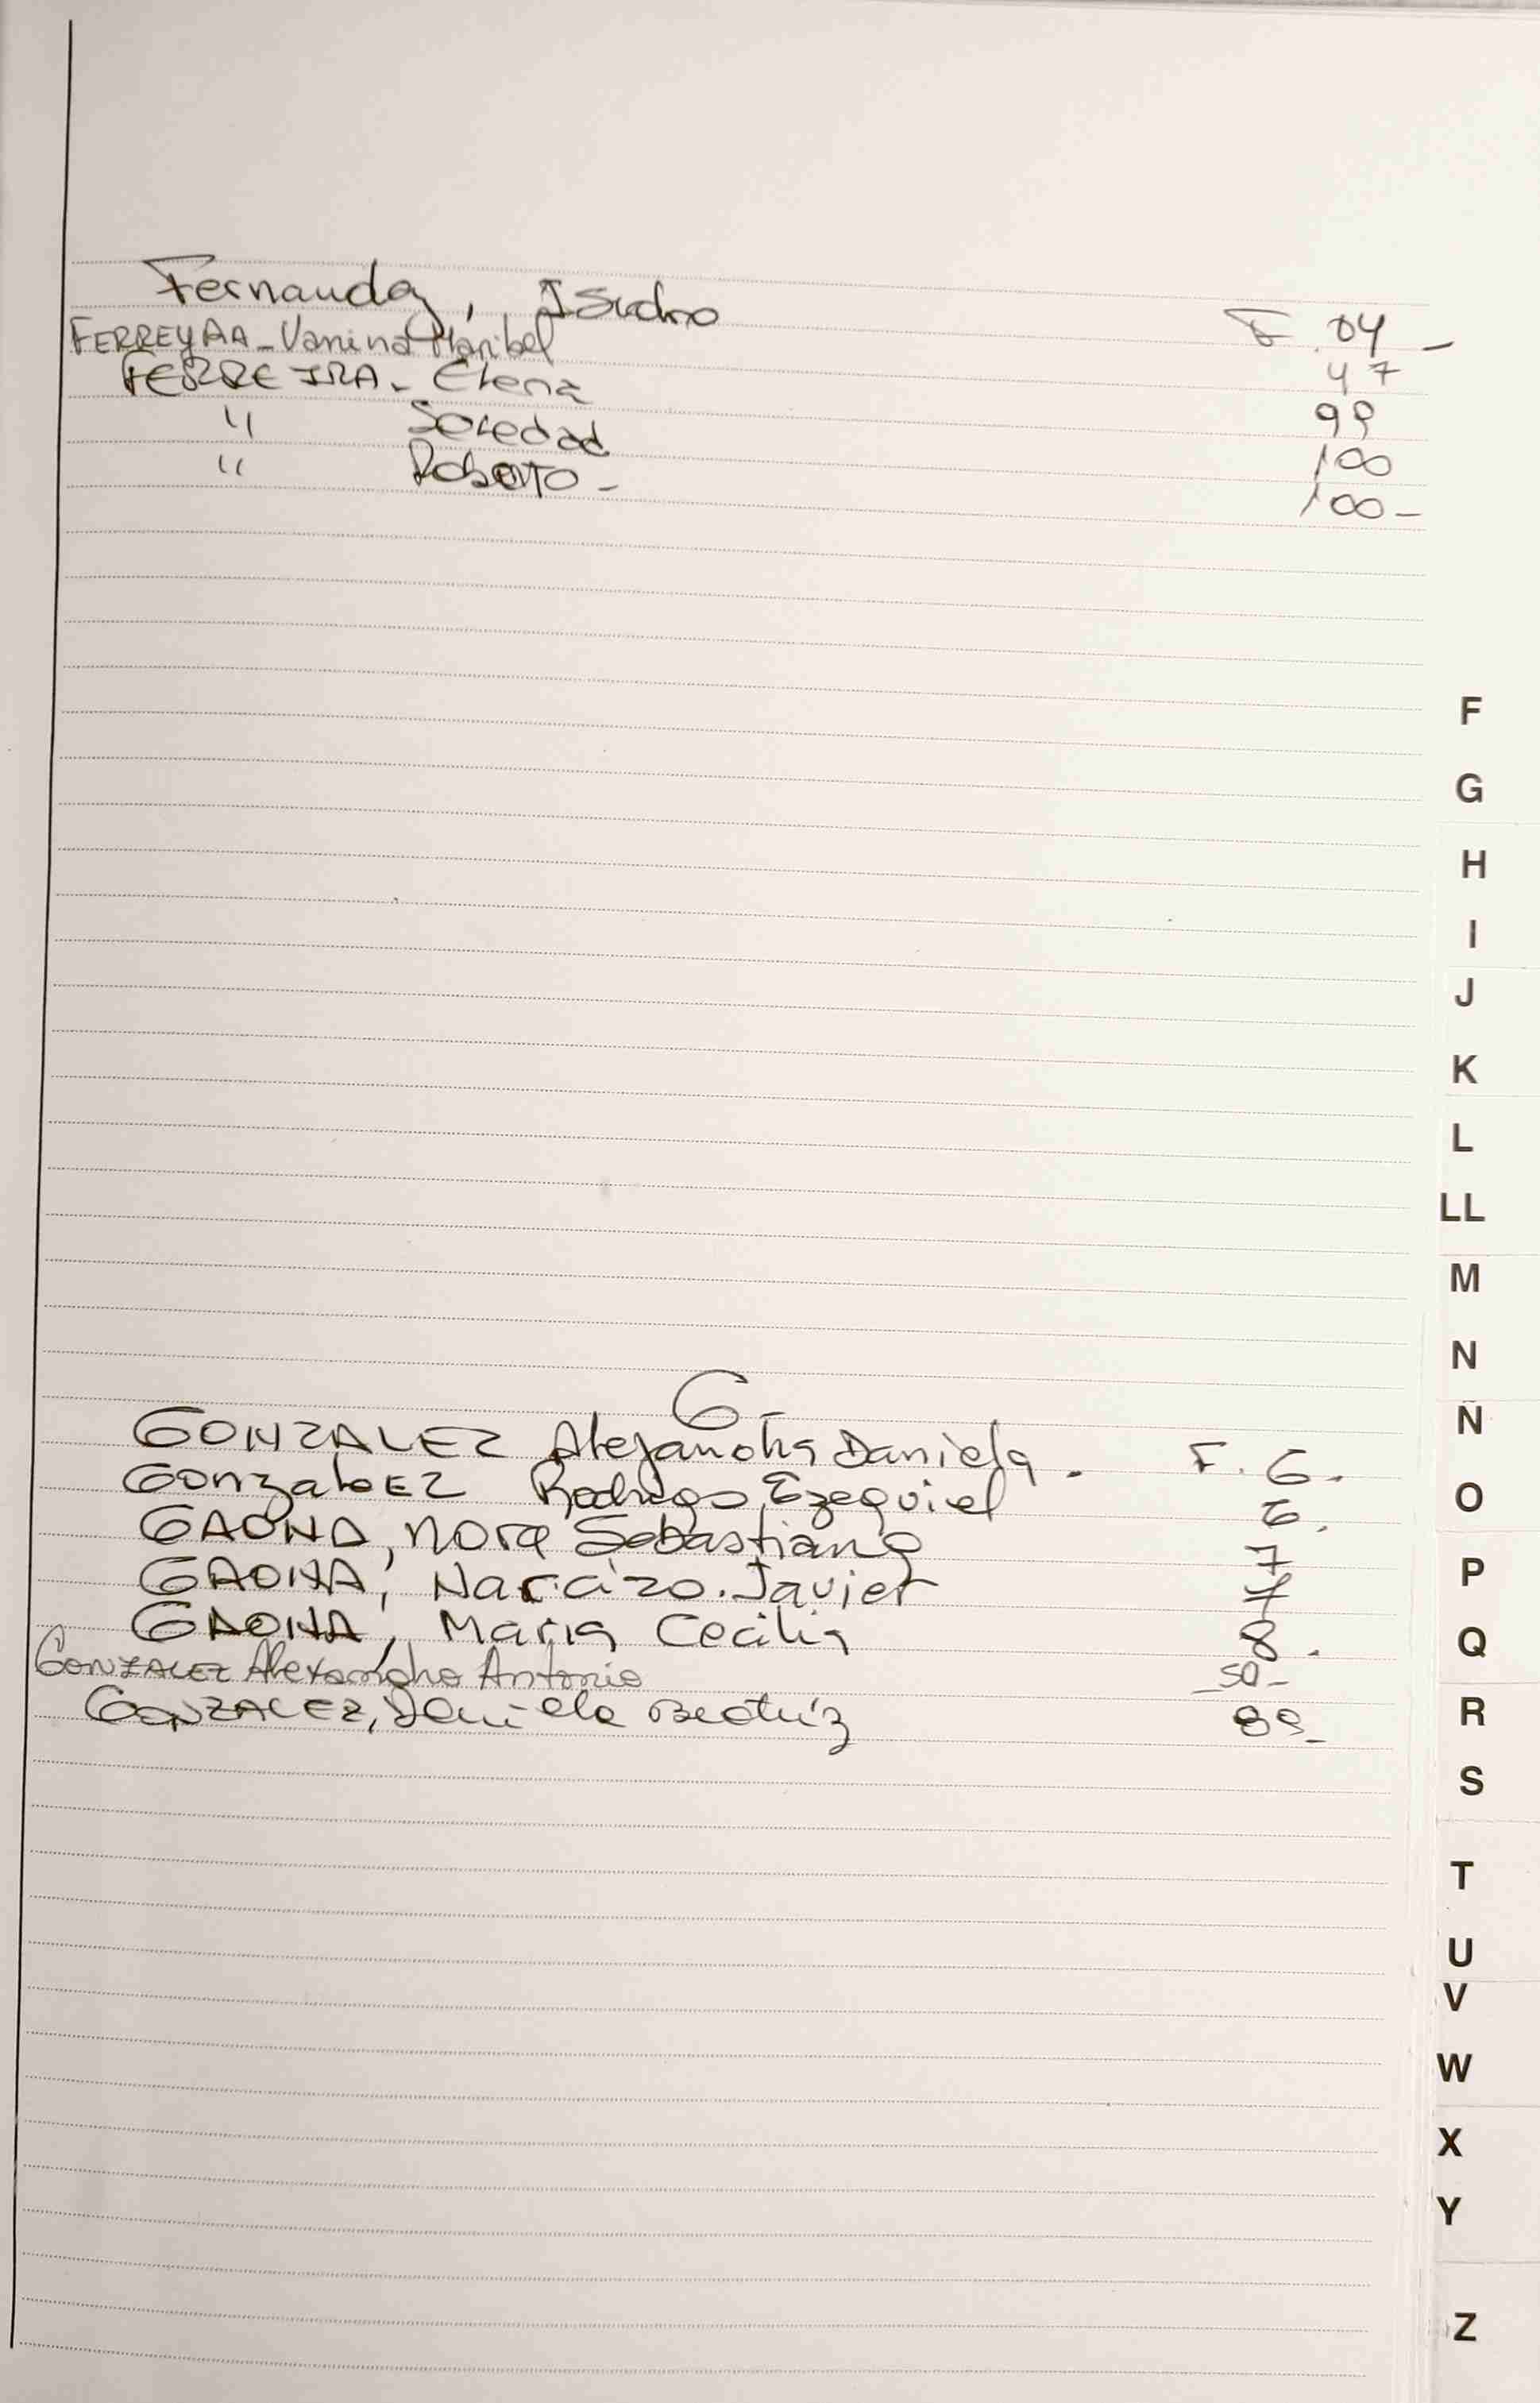 Fernandez, Isidro F. 04 -
FERREYRA - Vanina Maribel 47
FERREIRA - Elena 99
" Soledad 100
" Roberto - 100 -
F
G
H
I
J
K
L
LL
M
N
Ñ
O
P
Q
R
S
T
U
V
W
X
Y
Z
G -
GONZALEZ Alejandra Daniela. F. 6.
GonzalEZ Rodrigo Ezequiel 6.
GAONA, Nora Sebastiana 7
GAONA, Narcizo. Javier 7
GAONA, Maria Cecilia 8.
GONZALEZ Alexandro Antonio 50 -
GONZALEZ, Daniela Beatriz 89 -